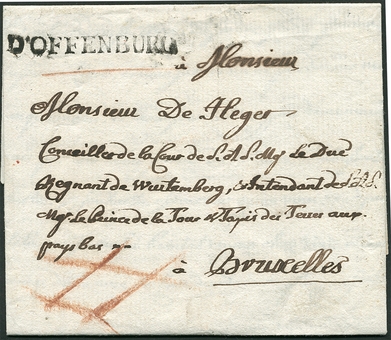 D'OFFENBURG
à Monsieur
Monsieur De Heger
Conseiller de la Cour de S. A. S. Mgr Le Duc
Regnant de Wurtemberg, & Intendant de S. A. S.
Mgr Le Prince de la Tour & Taxis des Terres aux
pays bas
à Bruxelles